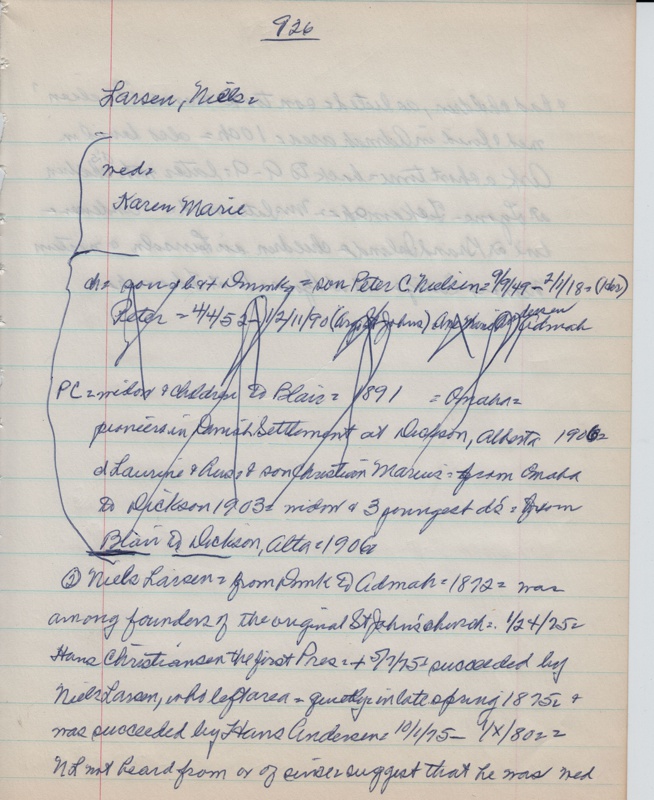 926
Larsen, Niels=
med=
Karen Marie
ch= son gb et Dnmk = son Peter C. Nielsen = 9/9/49 - 7/1/18 = (Her)
Peter = 4/4/52 - 12/11/90 (St Johns) Admah
PC = widow & children to Blair = 1891 = Omaha =
pioneers in Danish Settlement at Dickson, Alberta 1906=
d Laurine & & son Christian Marius = from Omaha
to Dickson 1903 = widow & 3 youngest ds = from
Blair to Dickson, Alta = 1906=
② Niels Larsen = from Dmk to Admah = 1872 = was
among founders of the original St John's church = 1/24/75=
Hans Christiansen the first Pres = + 5/7/75 = succeeded by
Niels Larsen, who left area = quietly = in late spring 1875 = &
was succeeded by Hans Andersen = 10/1/75 - 1/X/80 ==
NL not heard from or of since = suggest that he was med